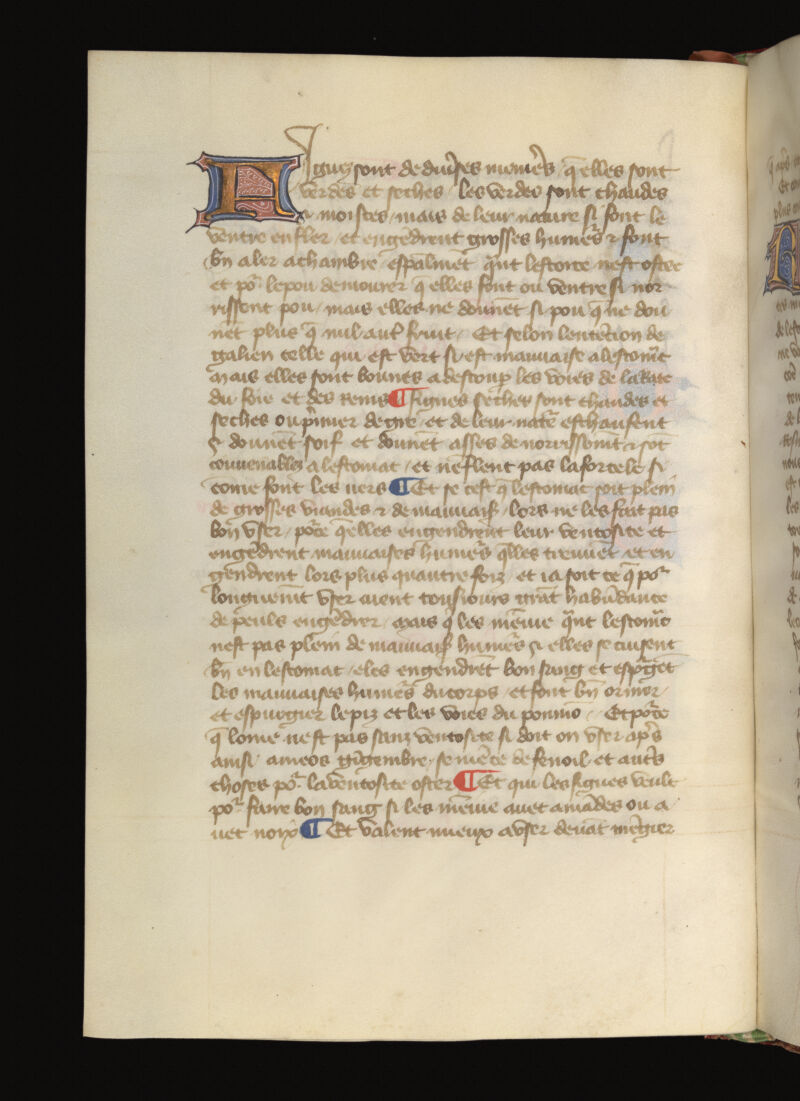 Figuez sont de diũses manieres q̃ elles sont
verdes et seches / les verdes sont chaudes
⁊ moistes / mais de leur nature si font le
ventre enfler / et engẽdrent grosses humeˢ ⁊ font
bñ aler a chambre / esp̃alment q̃nt lescorce nest ostee
et poˢ le pou demourer q̃ elles font ou ventre si nor
rissent pou / mais elles ne dõnnet si pou q̃ ne don
net plus q̃ nul autˢ fruit / Et selon lentẽcion de
galien celle qui est vert si est mauuaise a lestomãc
Mais elles sont bonnes a destoup̃ les voies de la Rate
du foie et des Reins ¶ Figues seches sont chaudes et
seches ou p̃mier degre / et de leur natˢe eschaufent
⁊ dõnnet soif et dõnnet asses de norrissemt̃ ⁊ sõt
conuenables a lestomac / et nẽflent pas la forcele si
come font les uers ¶ Et se cest q̃ lestomac soit plein
de grosses viandes ⁊ de mauuais / lors ne les fait pas
bon vser / porˢce q̃lles engendrent leur ventosite et
engẽdrent mauuaises humeˢs q̃lles treuuẽt / et en
gendrent lors plus quautre foiz / et ia soit ce q̃ poˢ
longuemt̃ vser aient tousiours grãt habũdance
de peuls engẽdrer / mais q̃ les meniue q̃nt lestomãc
nest pas plein de mauuais humeˢs ⁊ elles se cuisent
bñ en lestomac / eles engendrẽt bon sang et espˢget
les mauuaises humeˢs du corps / et font bñ oriner /
et espurgier le piz et les voies du pommõ / Et porˢce
q̃ lome nest pas sanz ventosite si doit on vser ap̃s
ainsi ameos gĩgembre / semẽce de fenoil et autˢs
choses poˢ la ventosite oster ¶ Et qui les figues veult
poˢ faire bon sang si les meniue auet amãdes ou a
uet noix ¶ Et valent mieux a vser deuãt mẽgier